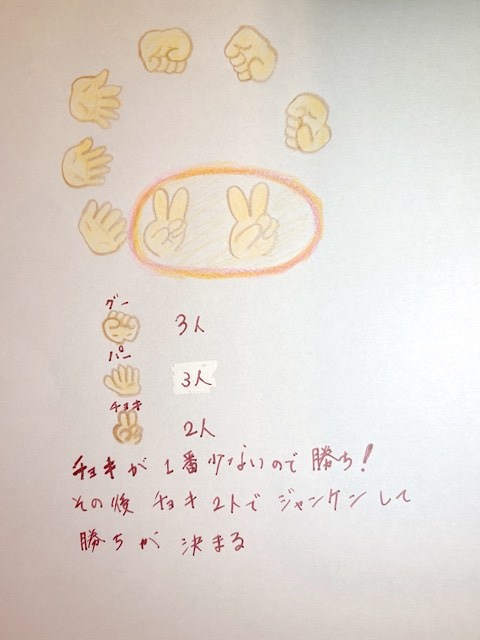 グー
3人
パー
3人
チョキ
2人
チョキが1番少ないので勝ち!
その後チョキ2人でジャンケンして
勝ちが決まる